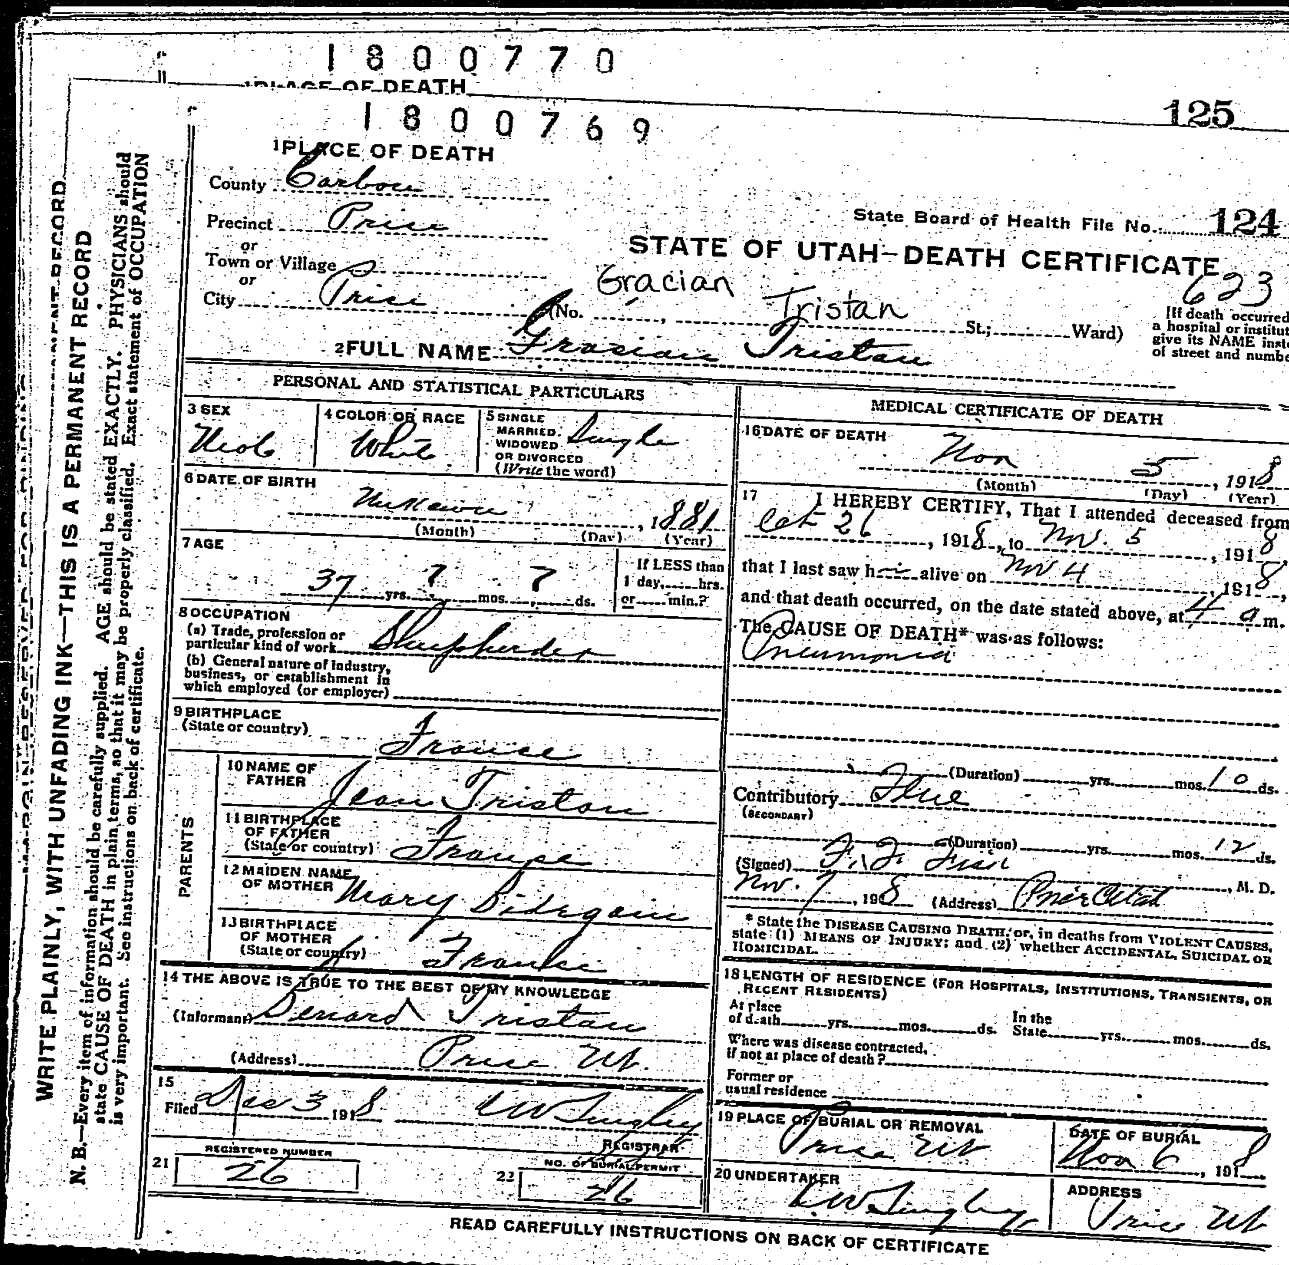 1800770
PLACE OF DEATH
125
1800769
1 PLACE OF DEATH
County Carbon
State Board of Health File No. 124
Precinct Price
or
Town or Village
or
City Price
STATE OF UTAH—DEATH CERTIFICATE
623
Gracian Tristan
(No. , St.; Ward)
[If death occurred
a hospital or institut
give its NAME inste
of street and numbe
2 FULL NAME Grasian Tristan
PERSONAL AND STATISTICAL PARTICULARS
3 SEX
Male
4 COLOR OR RACE
White
5 SINGLE
MARRIED.
WIDOWED
OR DIVORCED
(Write the word)
Single
6 DATE OF BIRTH
Unknown , 1881
(Month) (Day) (Year)
7 AGE
37 yrs. ? mos. ? ds.
If LESS than
1 day, hrs.
or min.?
8 OCCUPATION
(a) Trade, profession or
particular kind of work Sheepherder
(b) General nature of industry,
business, or establishment in
which employed (or employer)
9 BIRTHPLACE
(State or country)
France
PARENTS
10 NAME OF
FATHER
Jean Tristan
11 BIRTHPLACE
OF FATHER
(State or country)
France
12 MAIDEN NAME
OF MOTHER
Mary Bidegain
13 BIRTHPLACE
OF MOTHER
(State or country)
France
14 THE ABOVE IS TRUE TO THE BEST OF MY KNOWLEDGE
(Informant) Benard Tristan
(Address) Price Ut.
15
Filed Dec 3 1918
REGISTRAR
21 REGISTERED NUMBER
26
22 NO. OF BURIAL PERMIT
26
MEDICAL CERTIFICATE OF DEATH
16 DATE OF DEATH
Nov 5 , 1918
(Month) (Day) (Year)
17 I HEREBY CERTIFY, That I attended deceased from
Oct 26 , 1918, to Nov. 5 , 1918
that I last saw h alive on Nov 4 , 1918,
and that death occurred, on the date stated above, at 4 a m.
The CAUSE OF DEATH* was as follows:
Pneumonia
(Duration) yrs. mos. 10 ds.
Contributory Flue
(SECONDARY)
(Duration) yrs. mos. 12 ds.
(Signed) F. F. Fisk , M. D.
Nov. 7 , 1918 (Address) Price Utah
* State the DISEASE CAUSING DEATH, or, in deaths from VIOLENT CAUSES,
state (1) MEANS OF INJURY; and (2) whether ACCIDENTAL, SUICIDAL OR
HOMICIDAL.
18 LENGTH OF RESIDENCE (FOR HOSPITALS, INSTITUTIONS, TRANSIENTS, OR
RECENT RESIDENTS)
At place
of death yrs. mos. ds.
In the
State yrs. mos. ds.
Where was disease contracted,
if not at place of death?
Former or
usual residence
19 PLACE OF BURIAL OR REMOVAL
Price Ut
DATE OF BURIAL
Nov 6 , 1918
20 UNDERTAKER
ADDRESS
Price Ut
READ CAREFULLY INSTRUCTIONS ON BACK OF CERTIFICATE
WRITE PLAINLY, WITH UNFADING INK—THIS IS A PERMANENT RECORD
N. B.—Every item of information should be carefully supplied. AGE should be stated EXACTLY. PHYSICIANS should
state CAUSE OF DEATH in plain terms, so that it may be properly classified. Exact statement of OCCUPATION
is very important. See instructions on back of certificate.